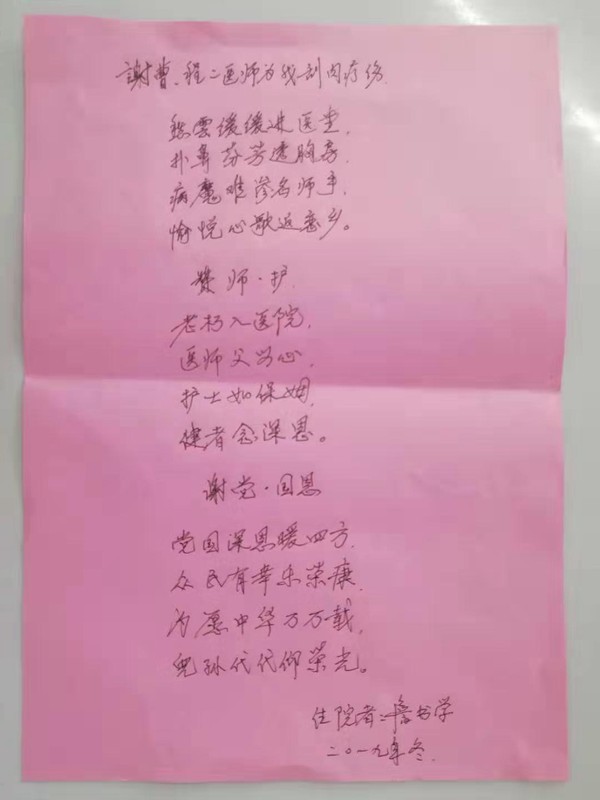 謝曹、程二医师为我刮肉疗伤
愁雲缓缓进医堂,
扑鼻芬芳透胸房,
病魔难渗名师手,
愉悦心歌返恋乡。
赞师·护
老朽入医院,
医师父母心,
护士如保姆,
健者念深恩。
谢党·国恩
党国深恩暖四方,
众民有幸乐荣康,
为愿中华万万载,
儿孙代代仰荣光。
住院者:詹书学
二〇一九年冬.